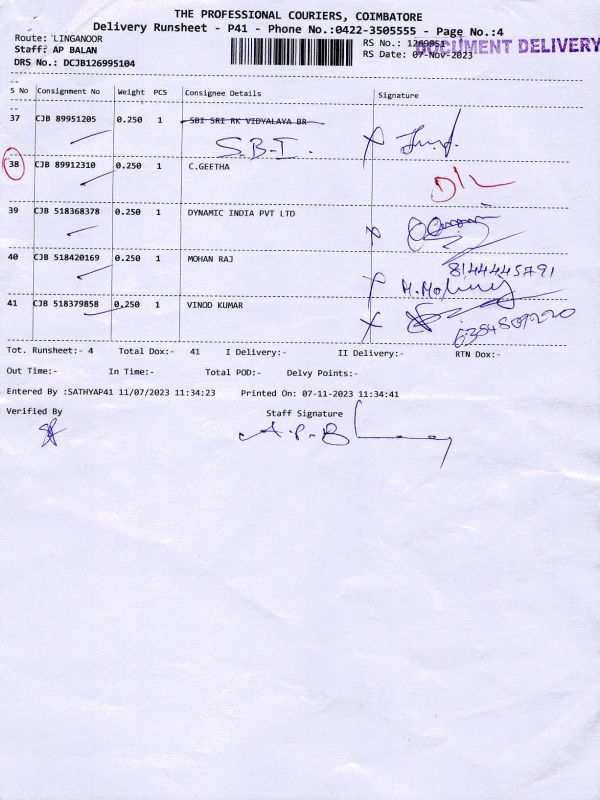 THE PROFESSIONAL COURIERS, COIMBATORE
Delivery Runsheet - P41 - Phone No.:0422-3505555 - Page No.:4
Route: LINGANOOR
RS No.: 1269951
DOCUMENT DELIVERY
Staff: AP BALAN
RS Date: 07-Nov-2023
DRS No.: DCJB126995104
S No Consignment No Weight PCS Consignee Details Signature
37 CJB 89951205 0.250 1 SBI SRI RK VIDYALAYA BR
S.B.I.
38 CJB 89912310 0.250 1 C.GEETHA
D/L
39 CJB 518368378 0.250 1 DYNAMIC INDIA PVT LTD
40 CJB 518420169 0.250 1 MOHAN RAJ
8144445791
41 CJB 518379858 0.250 1 VINOD KUMAR
Tot. Runsheet:- 4 Total Dox:- 41 I Delivery:- II Delivery:- RTN Dox:-
Out Time:- In Time:- Total POD:- Delvy Points:-
Entered By :SATHYAP41 11/07/2023 11:34:23 Printed On: 07-11-2023 11:34:41
Verified By Staff Signature